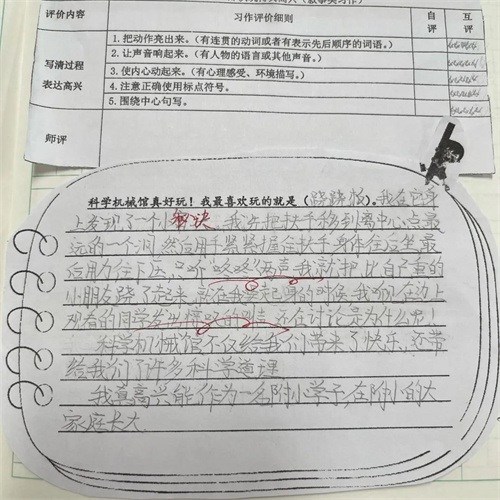 评价内容 习作评价细则 自评 互评
写清过程 表达高兴
1.把动作亮出来。(有连贯的动词或者有表示先后顺序的词语。)
2.让声音响起来。(有人物的语言或其他声音。)
3.使内心动起来。(有心理感受、环境描写。)
4.注意正确使用标点符号。
5.围绕中心句写。
师评
科学机械馆真好玩!我最喜欢玩的就是(跷跷板)。我在它身
上发现了一个小秘诀。我先把扶手移到离中心点最
远的一个洞,然后用手紧紧握住扶手,身体往后坐,最
后用力往下压,
小朋友跷了起来,就在我
观看的同学发出惊叹的
科学机械馆不仅给我们带来了快乐,还带
给我们了许多科学道理
我真高兴能作为一名附小学子,在附小的大
家庭长大